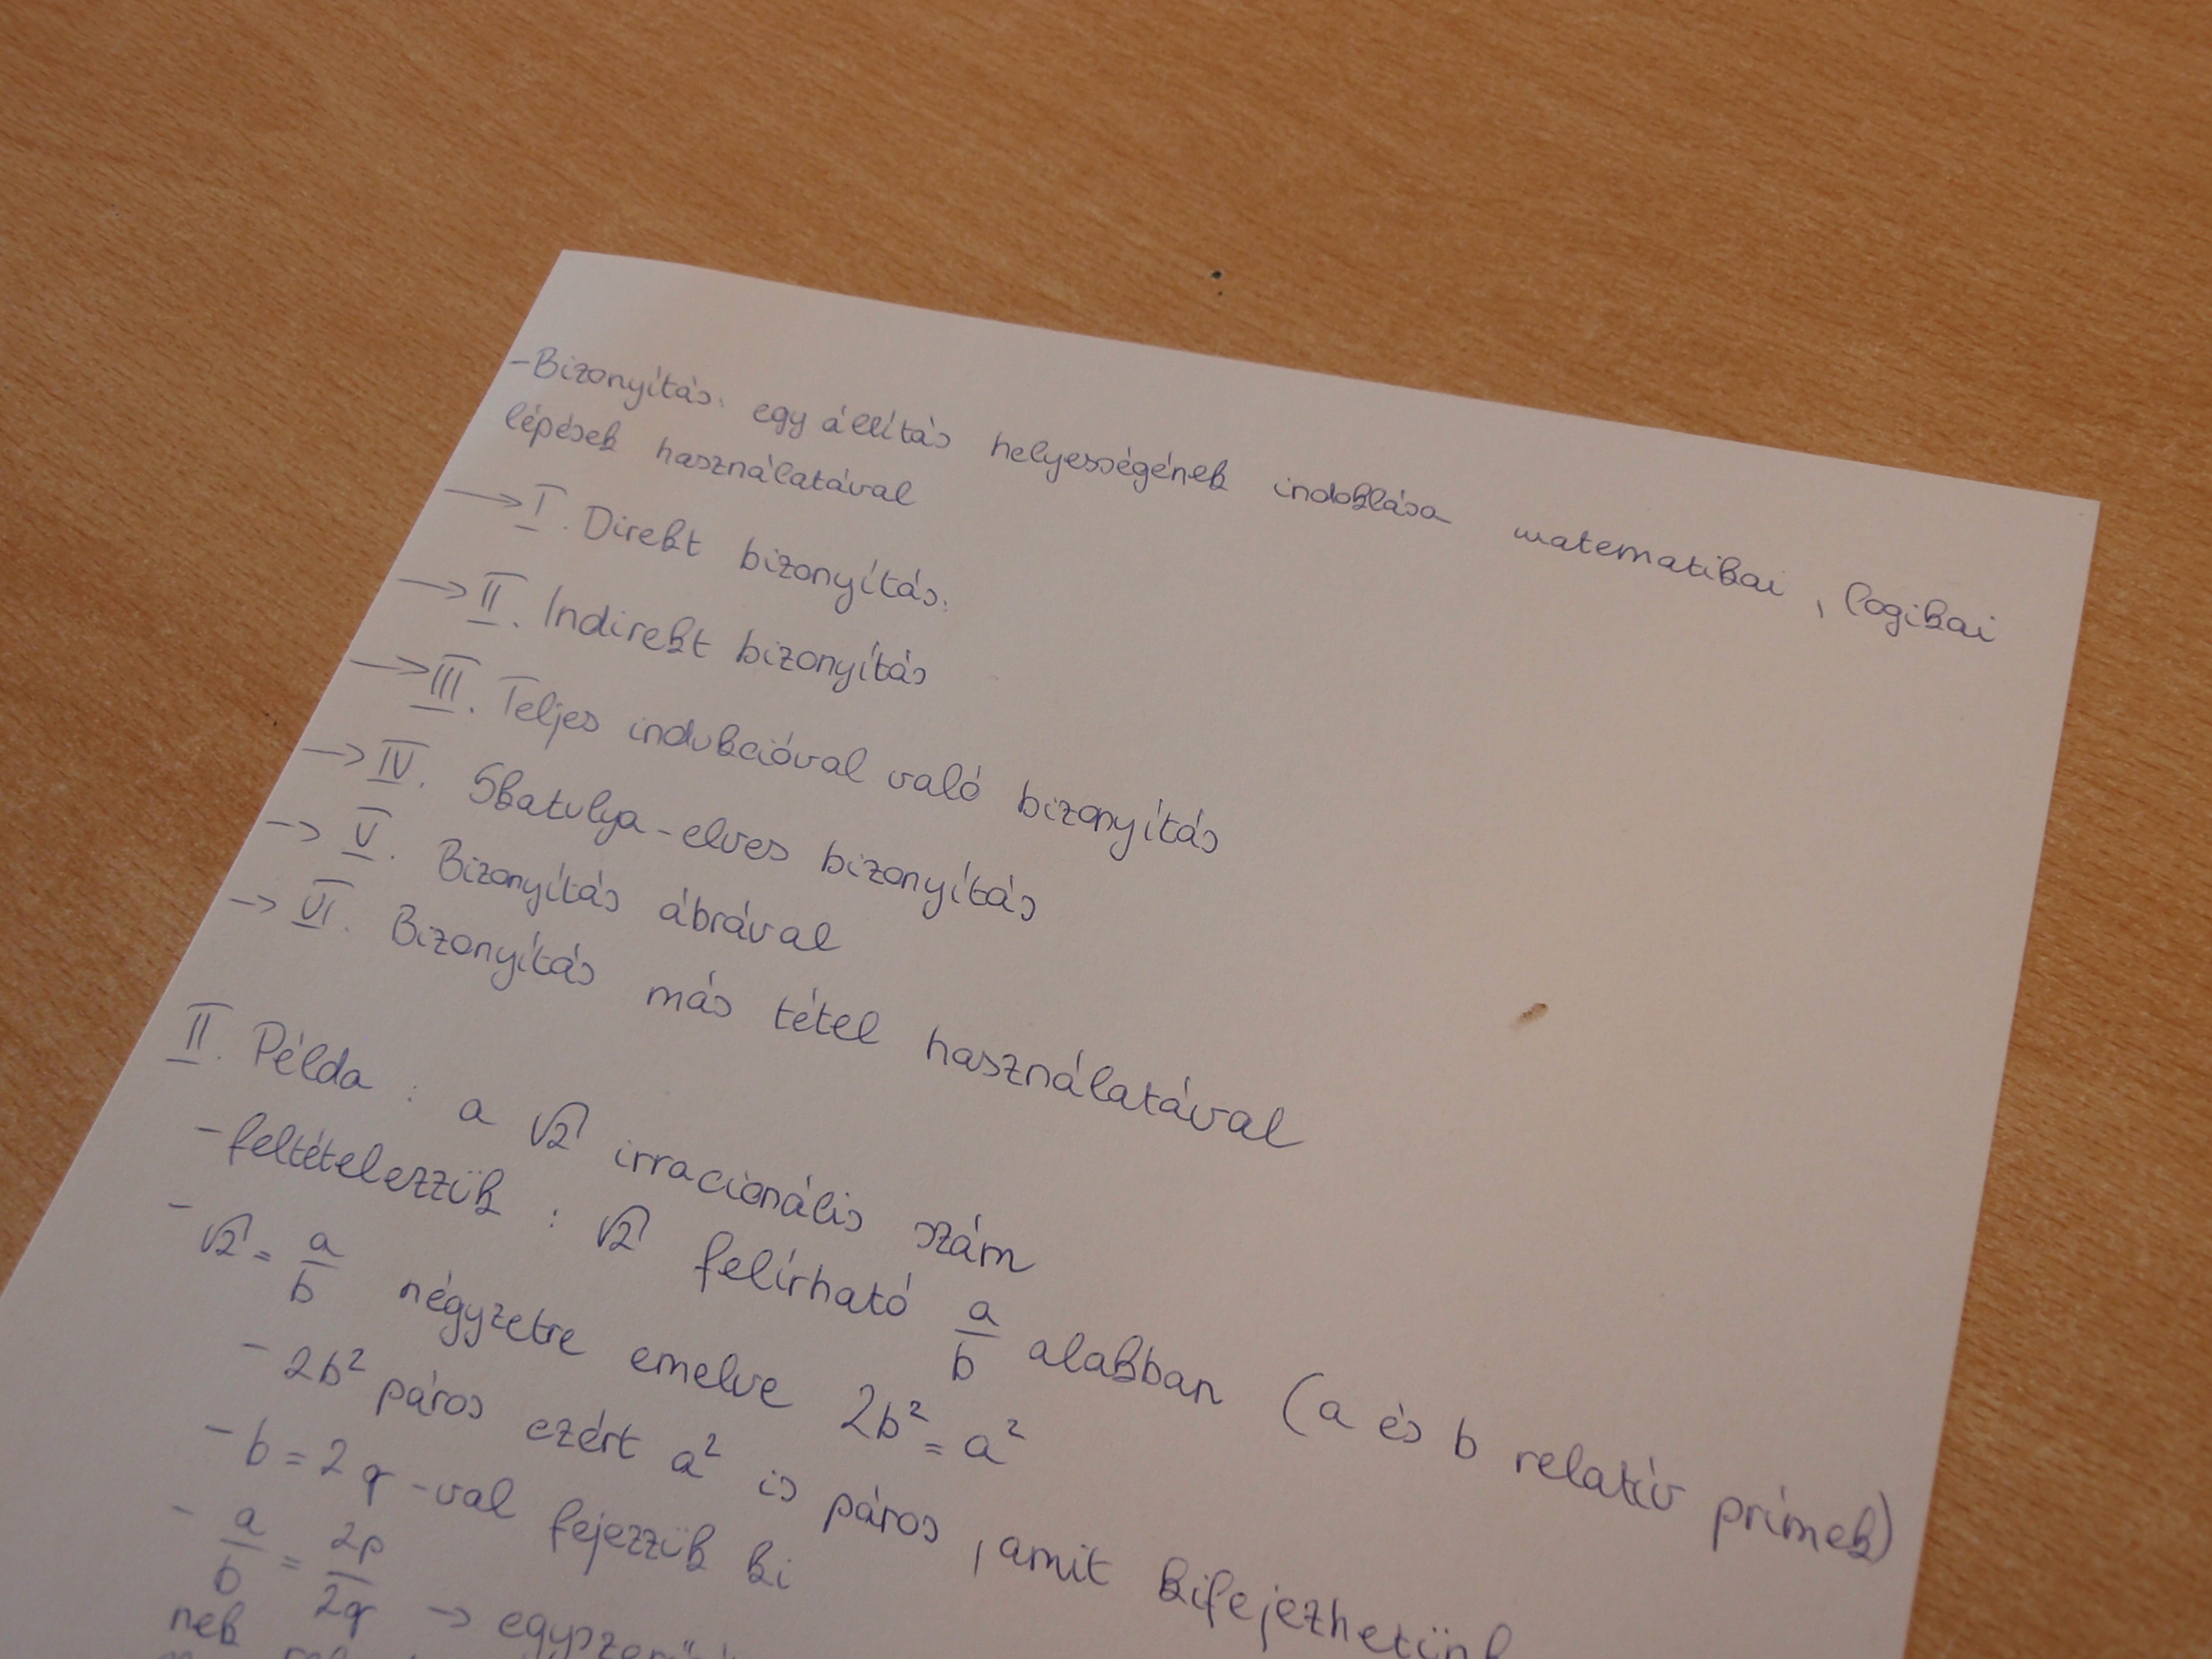 -Bizonyítás: egy állítás helyességének indoklása matematikai, logikai
lépések használatával
→ I. Direkt bizonyítás.
→ II. Indirekt bizonyítás
→ III. Teljes indukcióval való bizonyítás
→ IV. Skatulya-elves bizonyítás
→ V. Bizonyítás ábrával
→ VI. Bizonyítás más tétel használatával
II. Példa: a √2 irracionális szám
- feltételezzük: √2 felírható a/b alakban (a és b relatív prímek)
- √2 = a/b négyzetre emelve 2b² = a²
- 2b² páros ezért a² is páros, amit kifejezhetünk
- b = 2q -val fejezzük ki
- a/b = 2p/2q →
nek